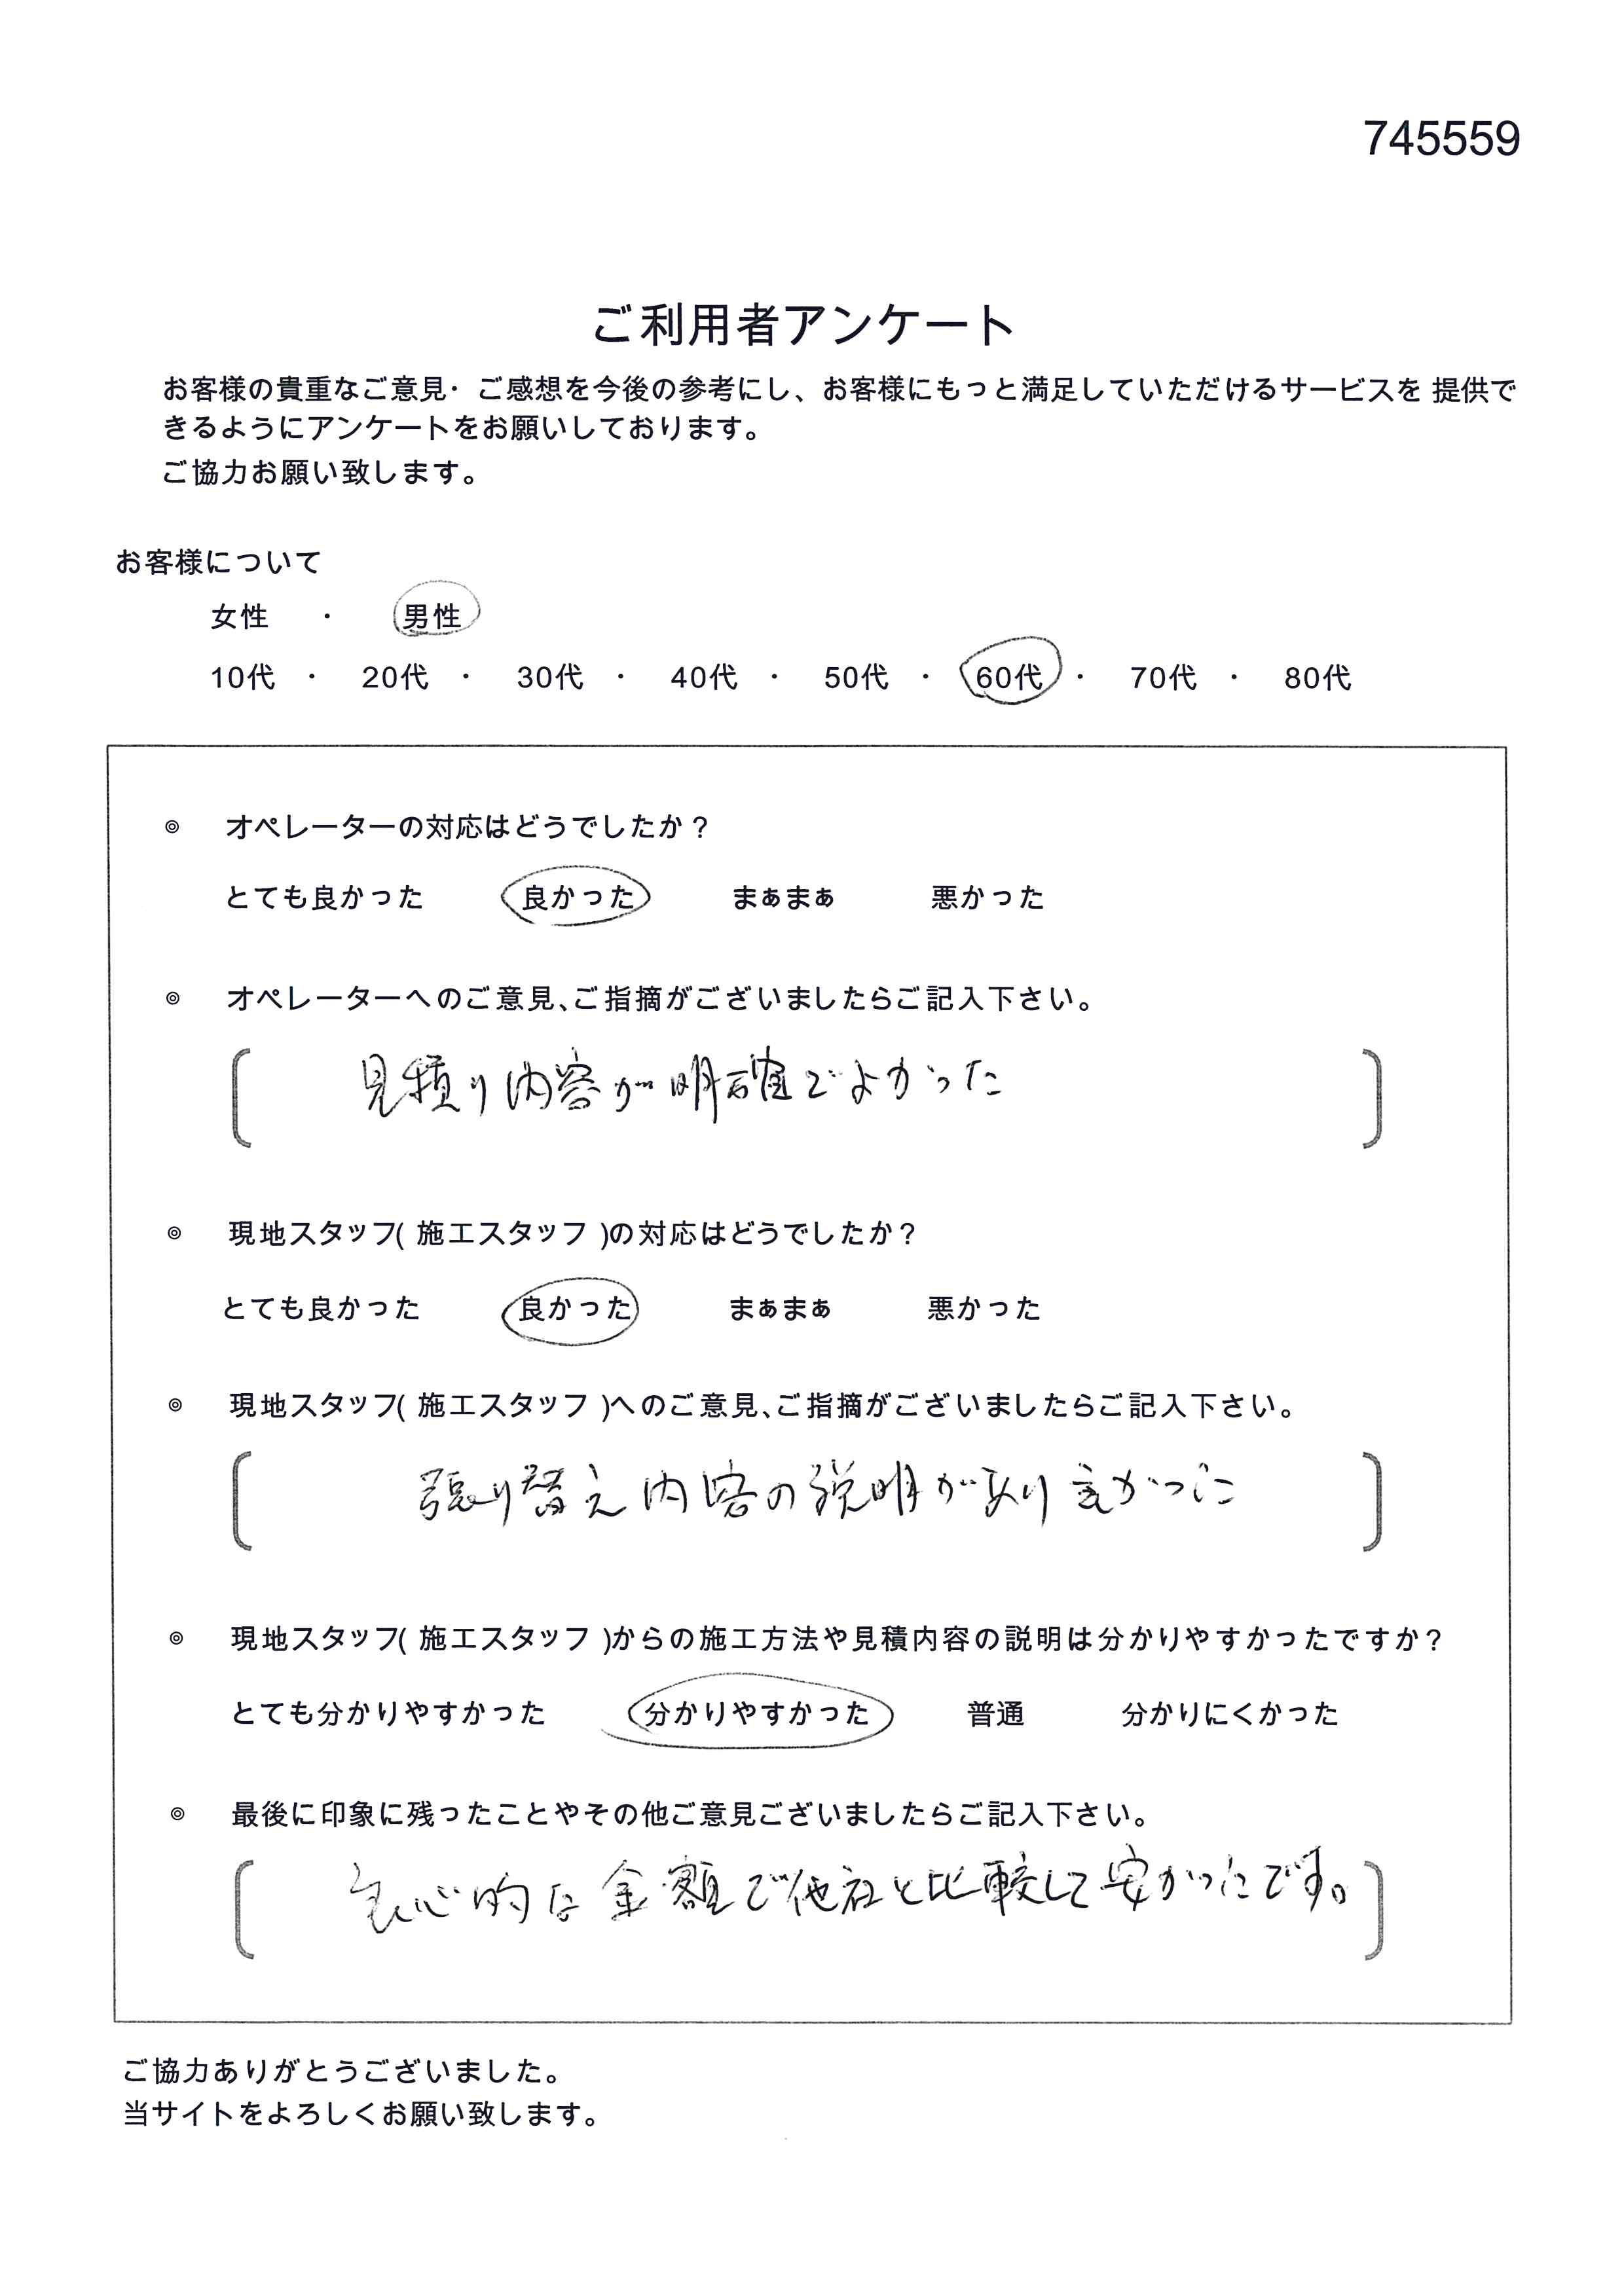 745559
ご利用者アンケート
お客様の貴重なご意見・ご感想を今後の参考にし、お客様にもっと満足していただけるサービスを 提供で
きるようにアンケートをお願いしております。
ご協力お願い致します。
お客様について
女性 ・ 男性
10代 ・ 20代 ・ 30代 ・ 40代 ・ 50代 ・ 60代 ・ 70代 ・ 80代
◎ オペレーターの対応はどうでしたか？
とても良かった 良かった まぁまぁ 悪かった
◎ オペレーターへのご意見、ご指摘がございましたらご記入下さい。
見積り内容が明確でよかった
◎ 現地スタッフ( 施工スタッフ )の対応はどうでしたか？
とても良かった 良かった まぁまぁ 悪かった
◎ 現地スタッフ( 施工スタッフ )へのご意見、ご指摘がございましたらご記入下さい。
張り替え内容の説明が 良かった
◎ 現地スタッフ( 施工スタッフ )からの施工方法や見積内容の説明は分かりやすかったですか？
とても分かりやすかった 分かりやすかった 普通 分かりにくかった
◎ 最後に印象に残ったことやその他ご意見ございましたらご記入下さい。
良心的な金額で他社と比較して安かったです。
ご協力ありがとうございました。
当サイトをよろしくお願い致します。